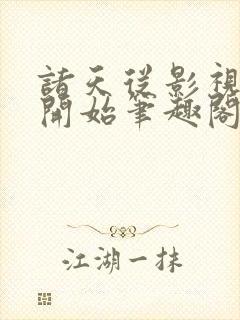 諸天從影視
開始筆趣閣
江湖一抹